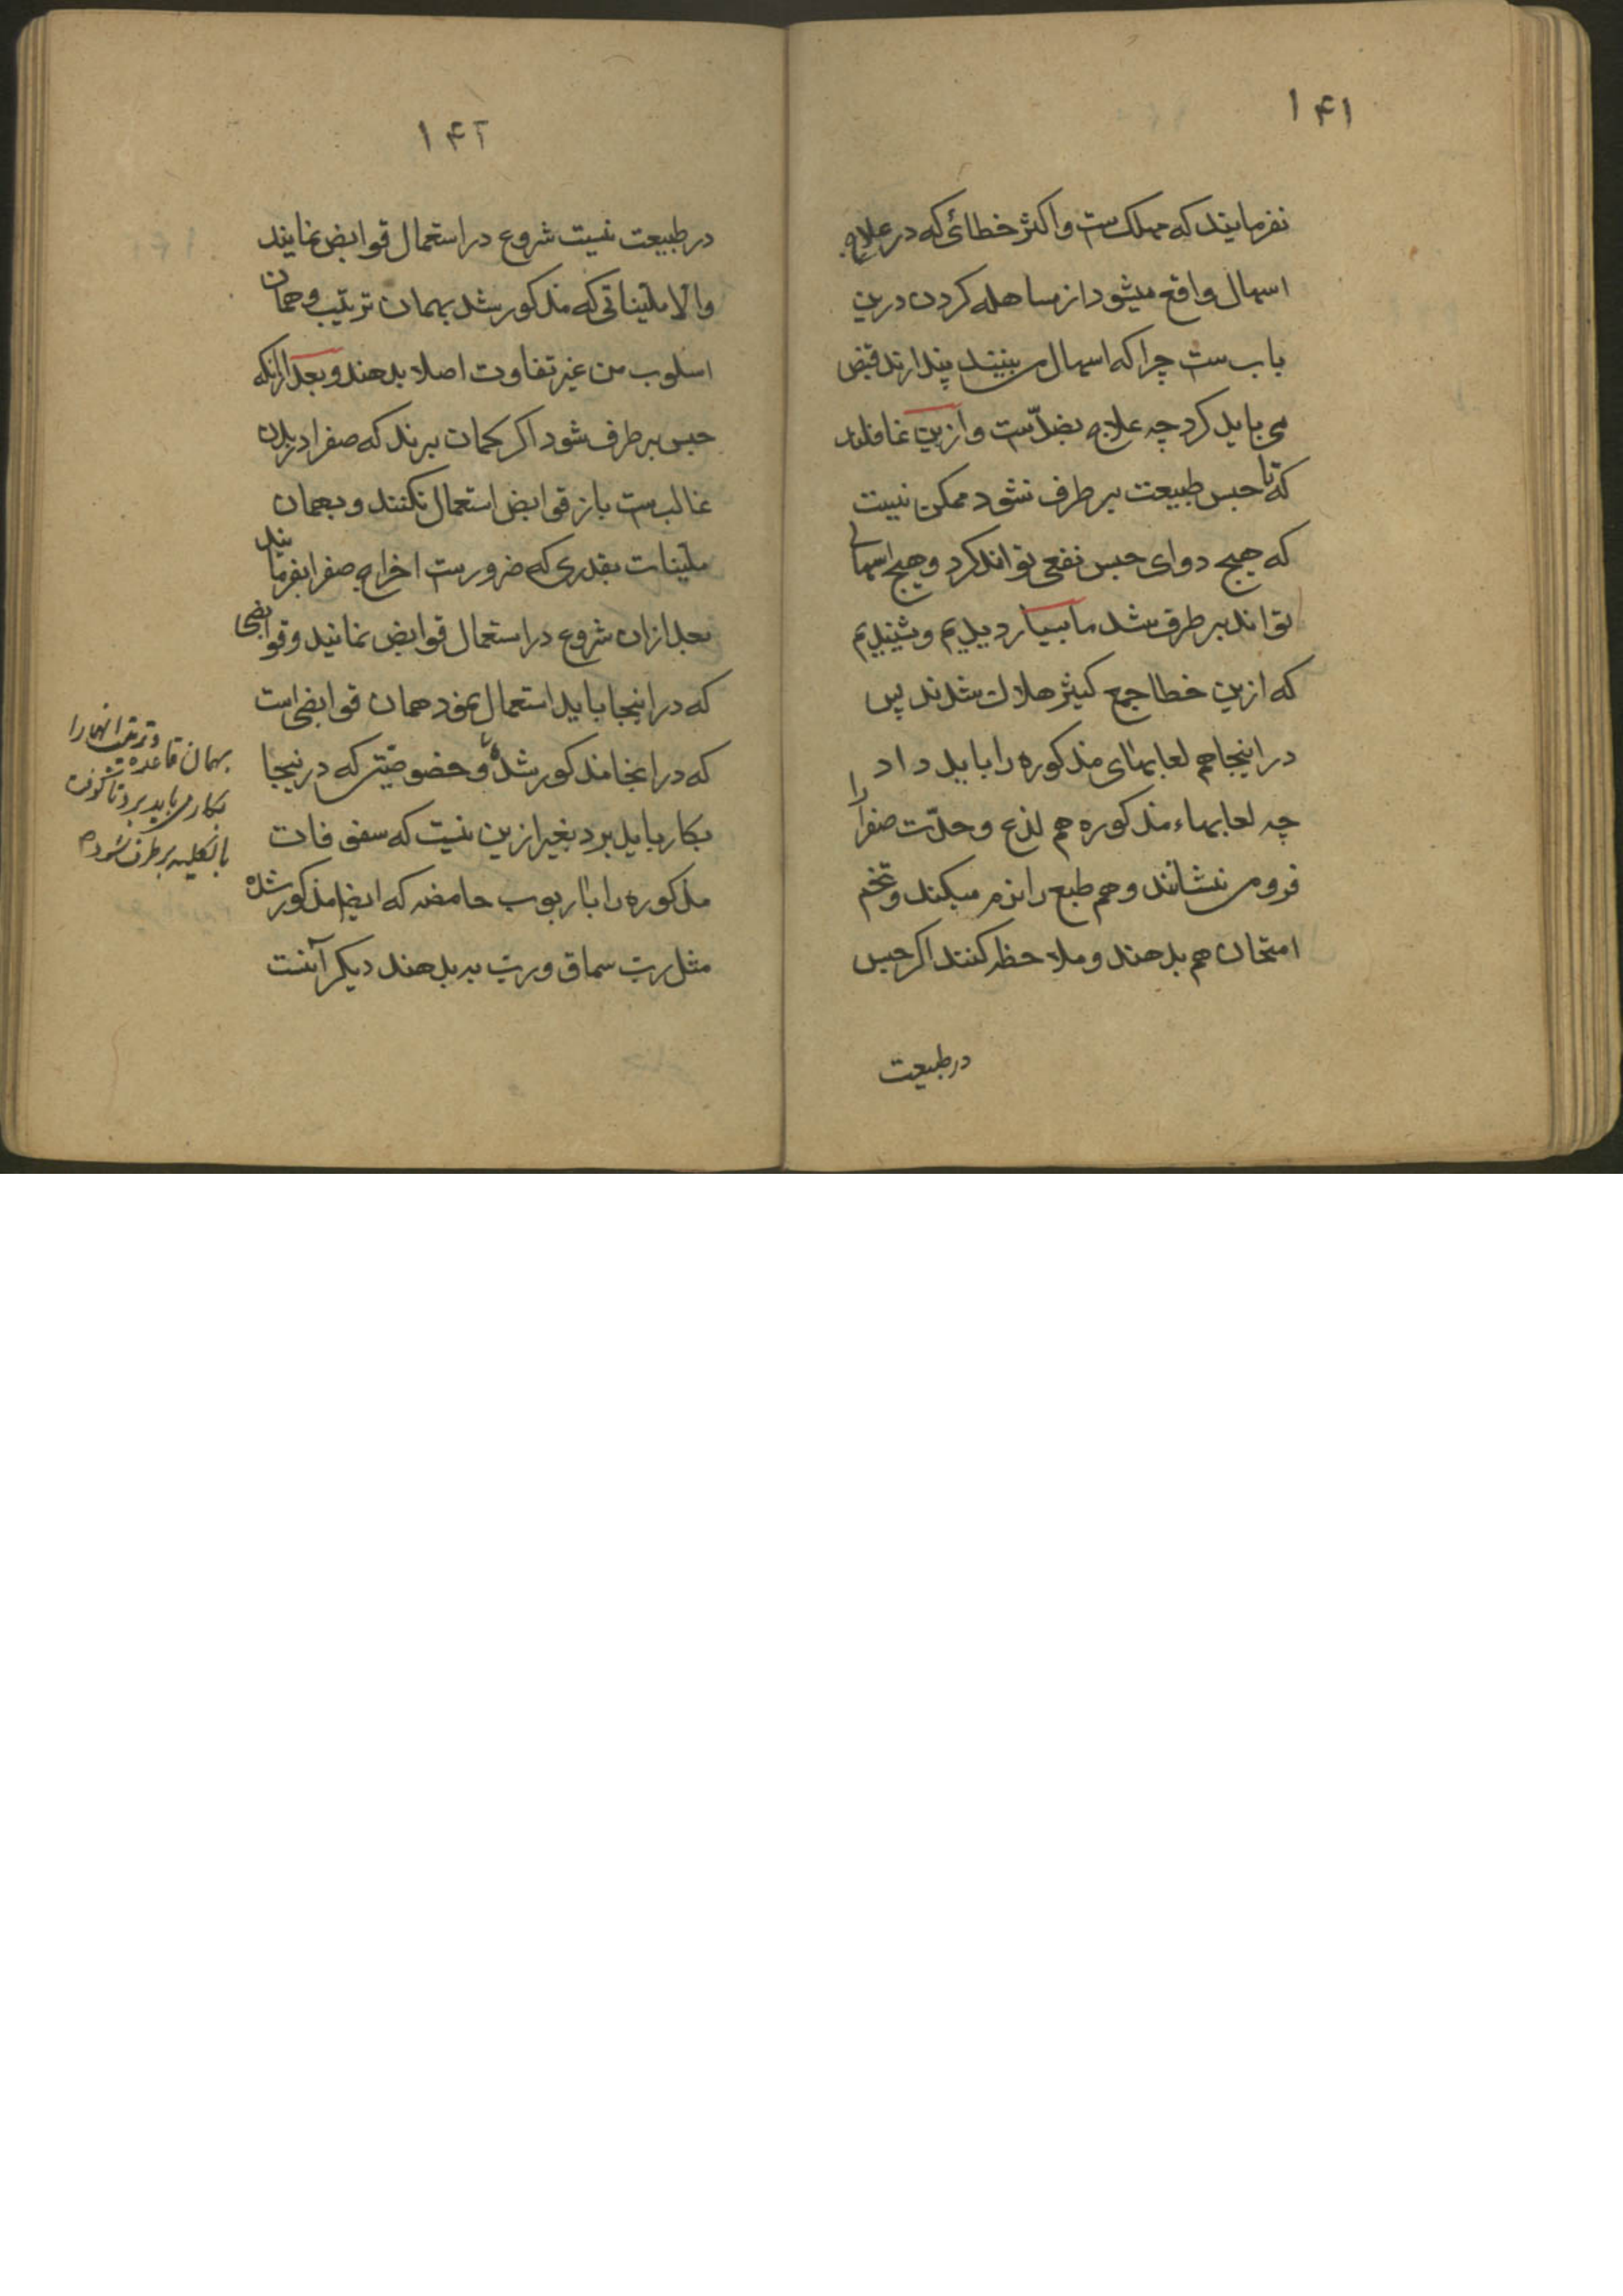 ۱۴۱
نفرمایند که مهلک ست و اکثر خطائی که در علاج
اسهال واقع میشود از مساهله کردن درین
باب ست چرا که اسهال می بینند پندارند قبض
می باید کرد چه علاج بضدّ ست و ازین غافلند
که تا حبس طبیعت بر طرف نشود ممکن نیست
که هیچ دوای حبس نفعی تواند کرد و هیچ اسهالی
تواند بر طرف شد ما بسیار دیدیم و شنیدیم
که ازین خطا جمع کثیر هلاک شدند پس
در اینجا هم لعابهای مذکوره را باید داد
چه لعابهاء مذکوره هم لذع و حدّت صفرا را
فرو می نشانند و هم طبع را نرم میکند و تخم
امتحان هم بدهند و ملاحظه کنند اکر حبس
در طبیعت
۱۴۲
در طبیعت نیست شروع در استعمال قوابض نمایند
والا ملیناتی که مذکور شد بهمان ترتیب و همان
اسلوب من غیر تفاوت اصلا بدهند و بعد از انکه
حبس بر طرف شود اکر کمان برند که صفرا در بدن
غالب ست باز قوابض استعمال نکنند و بهمان
ملینات بقدری که ضرورست اخراج صفرا بفرمایند
بعد ازان شروع در استعمال قوابض نمایند و قوابضی
که در اینجا باید استعمال نمود همان قوابضی است
که در انجا مذکور شده و خصوصیتی که در نیجا
بکار باید برد بغیر ازین نیست که سفوفات
مذکوره را با ربوب حامضه که ایضا مذکور شده
مثل ربّ سماق و ربّ به بدهند دیکر آنست
و ترتیب انها را
بهمان قاعده
بکار می باید برد تا
بالکلیه بر طرف شود